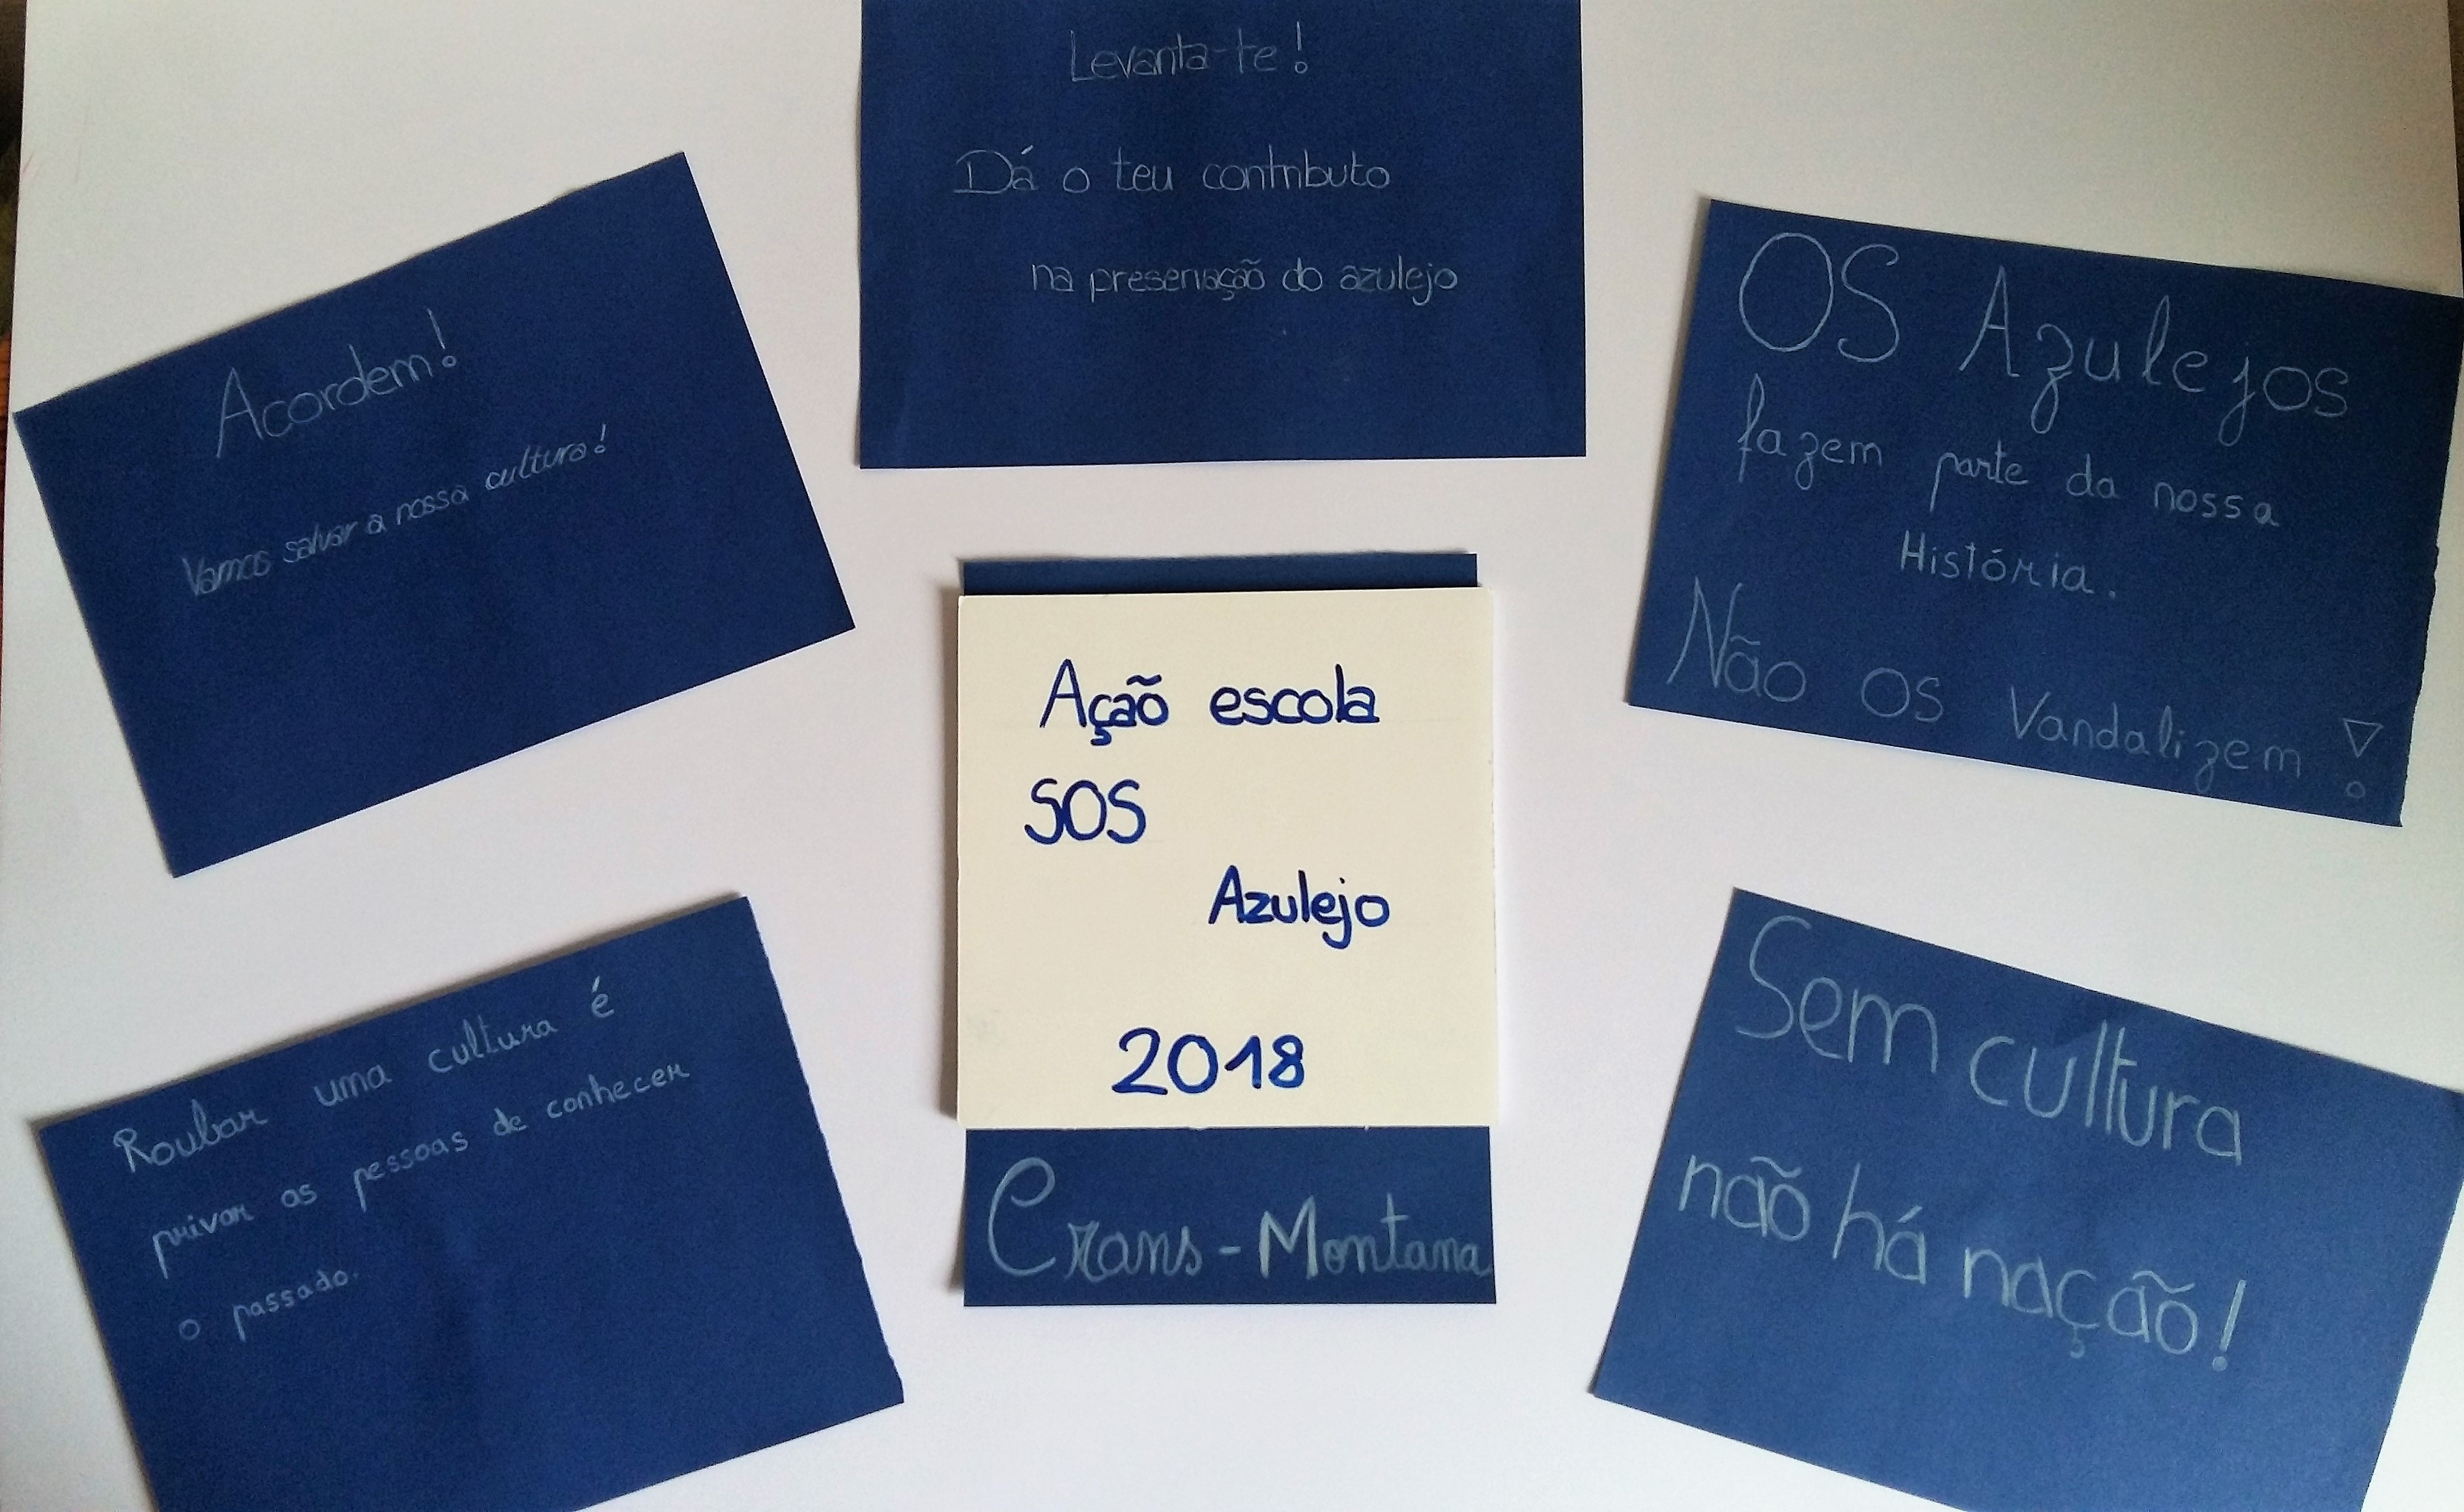 Levanta-te!
Dá o teu contributo
na preservação do azulejo
Acordem!
Vamos salvar a nossa cultura!
OS Azulejos
fazem parte da nossa
História.
Não os Vandalizem!
Ação escola
SOS
Azulejo
2018
Crans-Montana
Roubar uma cultura é
privar as pessoas de conhecer
o passado.
Sem cultura
não há nação!